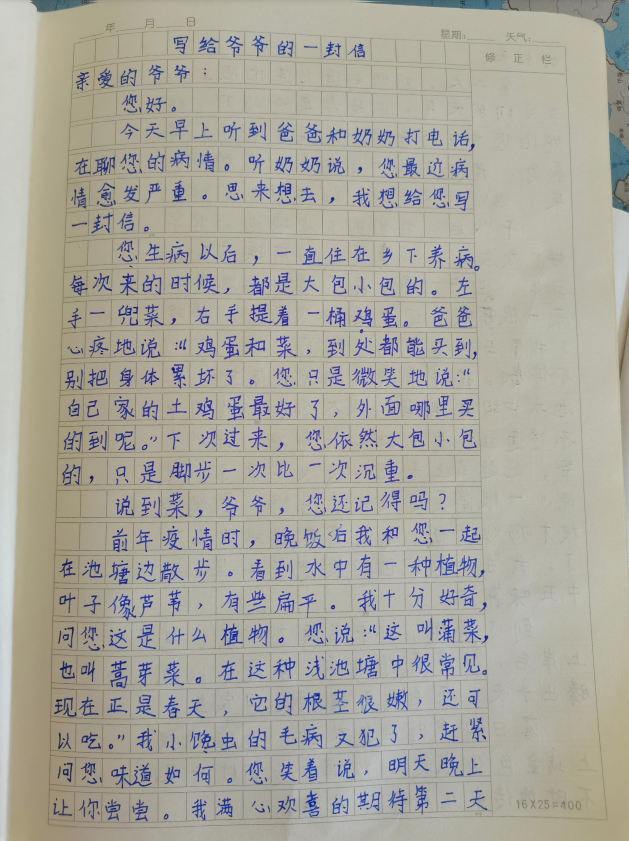 年 月 日 星期: 天气:
写给爷爷的一封信 修正栏
亲爱的爷爷：
您好。
今天早上听到爸爸和奶奶打电话，
在聊您的病情。听奶奶说，您最近病
情愈发严重。思来想去，我想给您写
一封信。
您生病以后，一直住在乡下养病。
每次来的时候，都是大包小包的。左
手一兜菜，右手提着一桶鸡蛋。爸爸
心疼地说：“鸡蛋和菜，到处都能买到，
别把身体累坏了。您只是微笑地说：“
自己家的土鸡蛋最好了，外面哪里买
的到呢。”下次过来，您依然大包小包
的，只是脚步一次比一次沉重。
说到菜，爷爷，您还记得吗？
前年疫情时，晚饭后我和您一起
在池塘边散步。看到水中有一种植物，
叶子像芦苇，有些扁平。我十分好奇，
问您这是什么植物。您说：“这叫蒲菜，
也叫蒿芽菜。在这种浅池塘中很常见。
现在正是春天，它的根茎很嫩，还可
以吃。”我小馋虫的毛病又犯了，赶紧
问您味道如何。您笑着说，明天晚上
让你尝尝。我满心欢喜的期待第二天
16X25=400